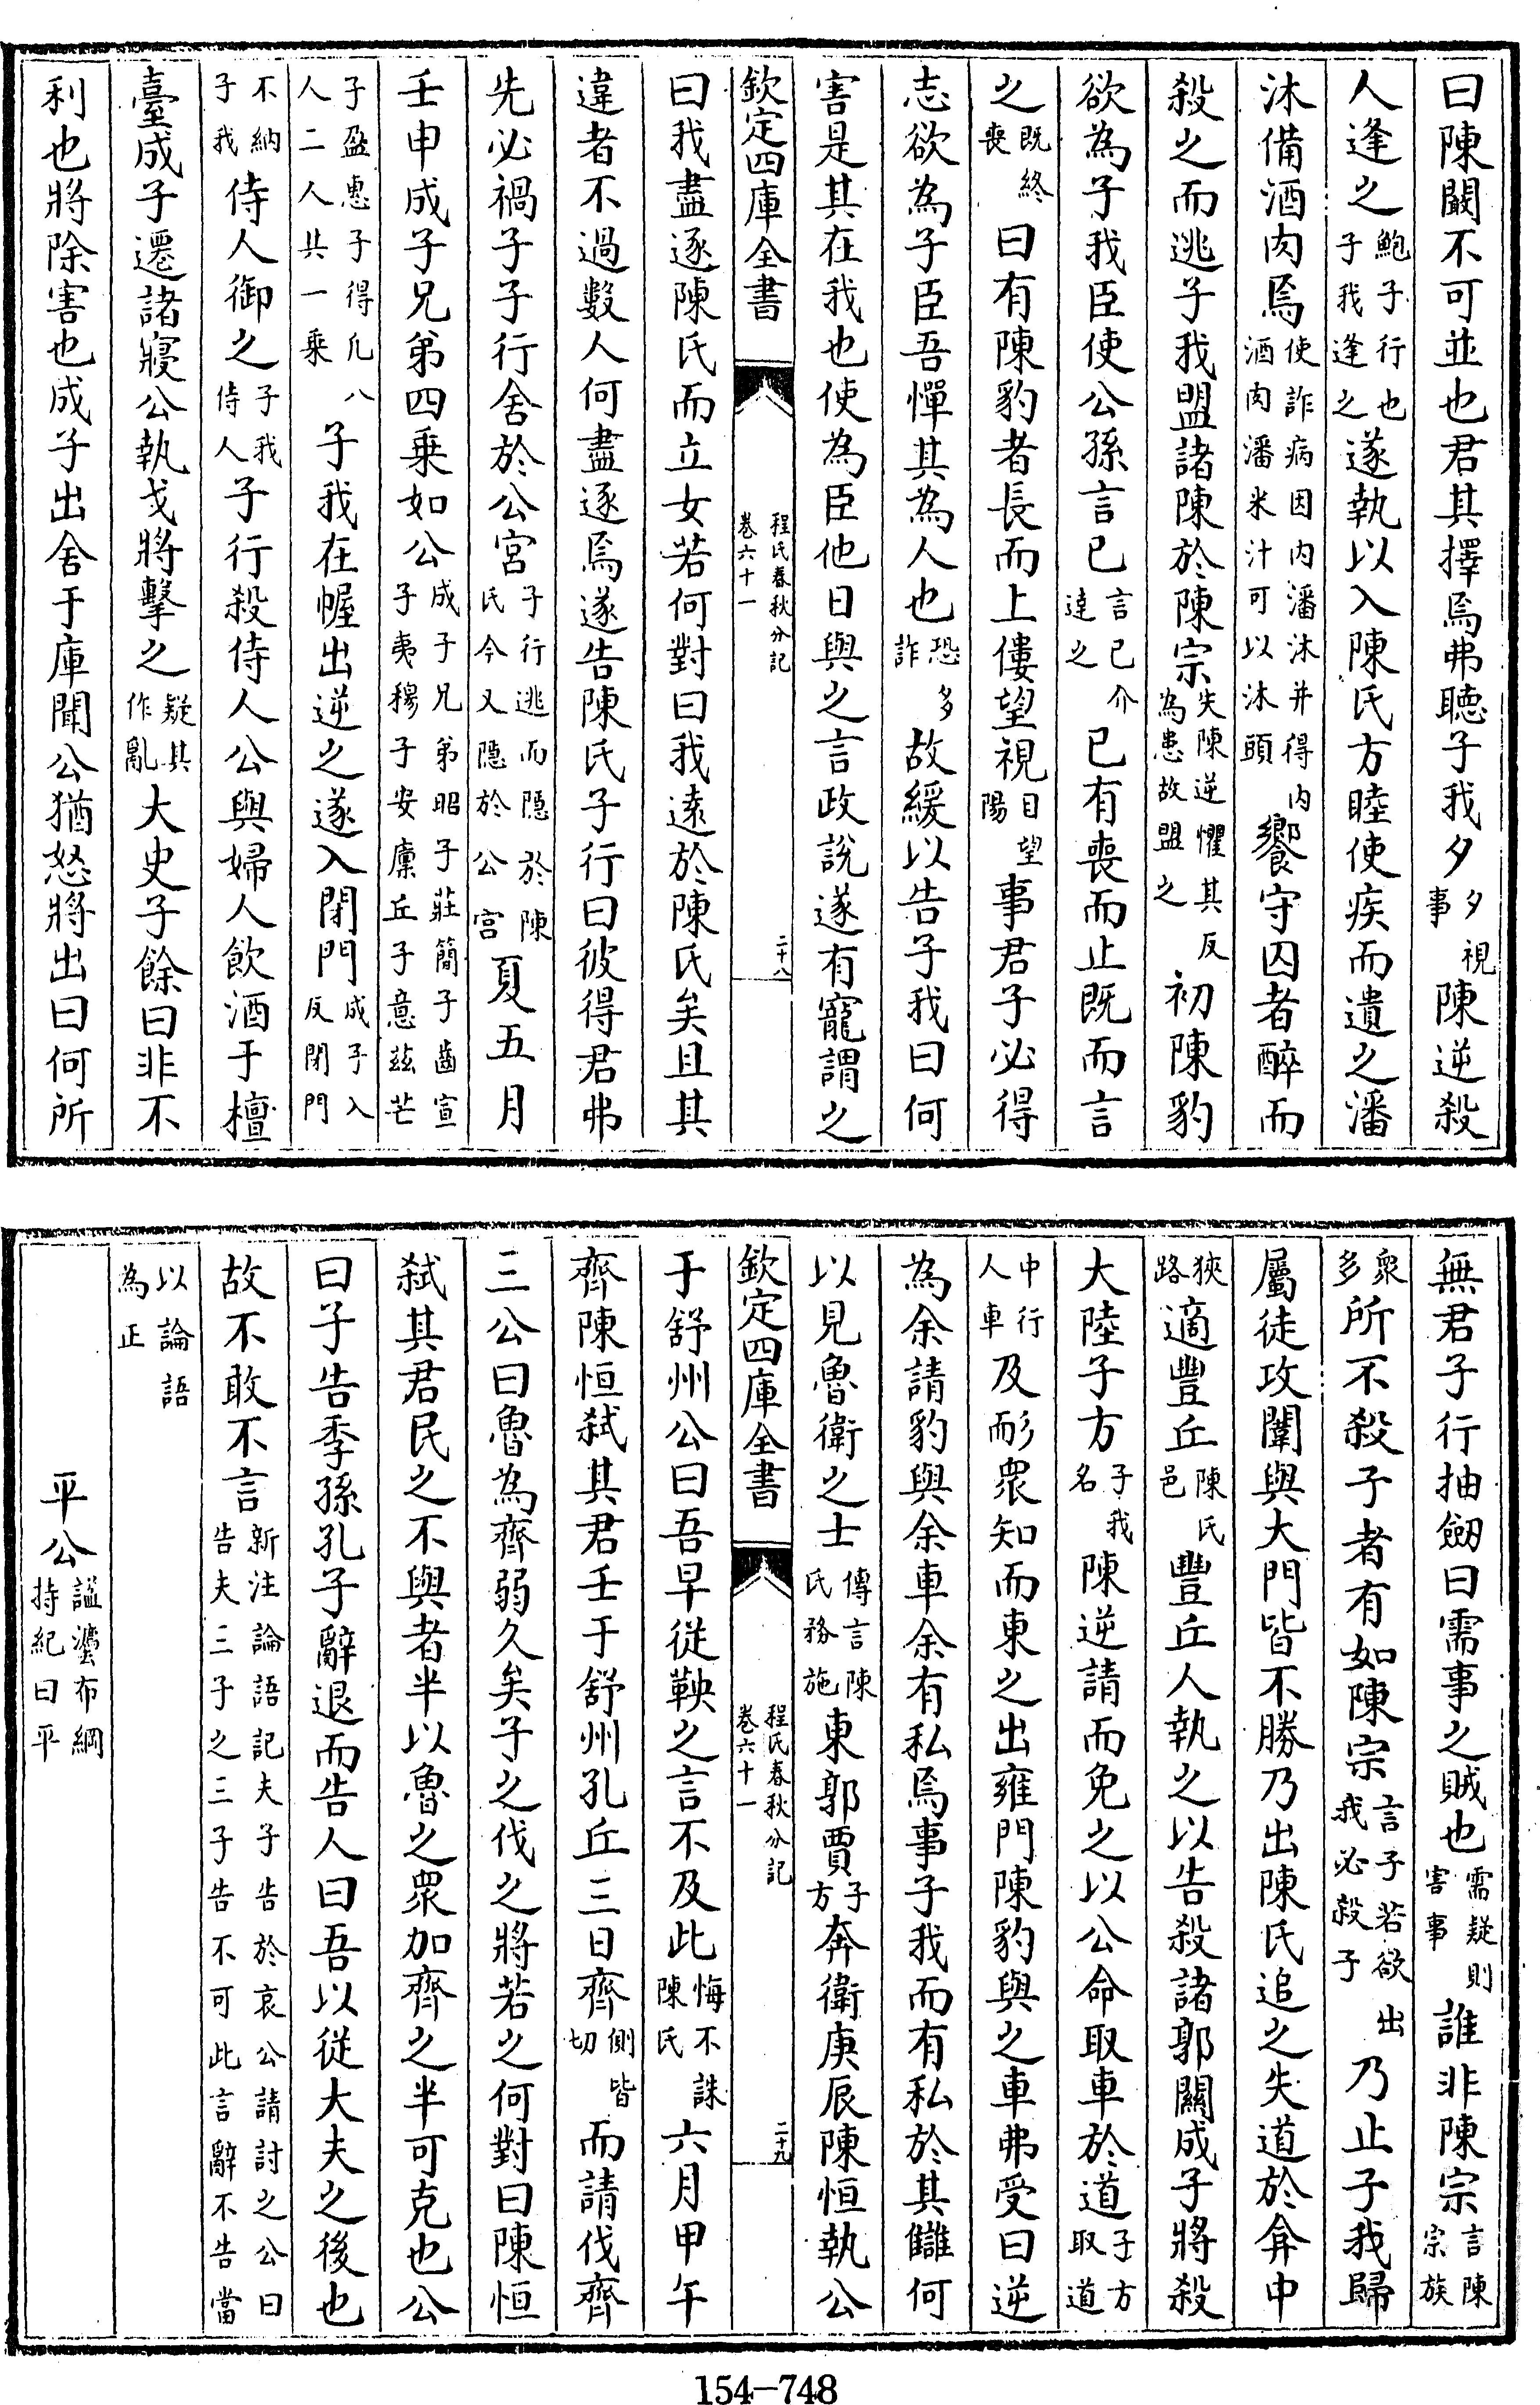 曰陳闞不可並也君其擇焉弗聽子我夕夕視事陳逆殺
人逢之鮑子行也子我逢之遂執以入陳氏方睦使疾而遺之潘
沐備酒肉焉使詐病因内潘沐并得内酒肉潘米汁可以沐頭饗守囚者醉而
殺之而逃子我盟諸陳於陳宗失陳逆懼其反為患故盟之初陳豹
欲為子我臣使公孫言已言已介達之已有喪而止既而言
之既終喪曰有陳豹者長而上僂望視目望陽事君子必得
志欲為子臣吾憚其為人也恐多詐故緩以告子我曰何
害是其在我也使為臣他日與之言政說遂有寵謂之
欽定四庫全書 程氏春秋分記卷六十一 二十八
曰我盡逐陳氏而立女若何對曰我遠於陳氏矣且其
違者不過數人何盡逐焉遂告陳氏子行曰彼得君弗
先必禍子子行舍於公宮子行逃而隱於陳氏今又隱於公宮夏五月
壬申成子兄弟四乗如公成子兄弟昭子莊簡子齒宣子夷穆子安廩丘子意茲芒
子盈惠子得凡八人二人共一乗子我在幄出逆之遂入閉門成子入反閉門
不納子我侍人御之子我侍人子行殺侍人公與婦人飲酒于檀
臺成子遷諸寢公執戈將擊之疑其作亂大史子餘曰非不
利也將除害也成子出舍于庫聞公猶怒將出曰何所
無君子行抽劒曰需事之賊也需疑則害事誰非陳宗言陳宗族
衆多所不殺子者有如陳宗言子若欲出我必殺子乃止子我歸
屬徒攻闈與大門皆不勝乃出陳氏追之失道於弇中
狹路適豐丘陳氏邑豐丘人執之以告殺諸郭關成子將殺
大陸子方子我名陳逆請而免之以公命取車於道子方取道
中行人車及耏衆知而東之出雍門陳豹與之車弗受曰逆
為余請豹與余車余有私焉事子我而有私於其讎何
以見魯衛之士傳言陳氏務施東郭賈子方奔衛庚辰陳恒執公
欽定四庫全書 程氏春秋分記卷六十一 二十九
于舒州公曰吾早從鞅之言不及此悔不誅陳氏六月甲午
齊陳恒弑其君壬于舒州孔丘三日齊側皆切而請伐齊
三公曰魯為齊弱久矣子之伐之將若之何對曰陳恒
弑其君民之不與者半以魯之眾加齊之半可克也公
曰子告季孫孔子辭退而告人曰吾以從大夫之後也
故不敢不言新注論語記夫子告於哀公請討之公曰告夫三子之三子告不可此言辭不告當
以論語為正
平公諡灋布綱持紀曰平
154-748